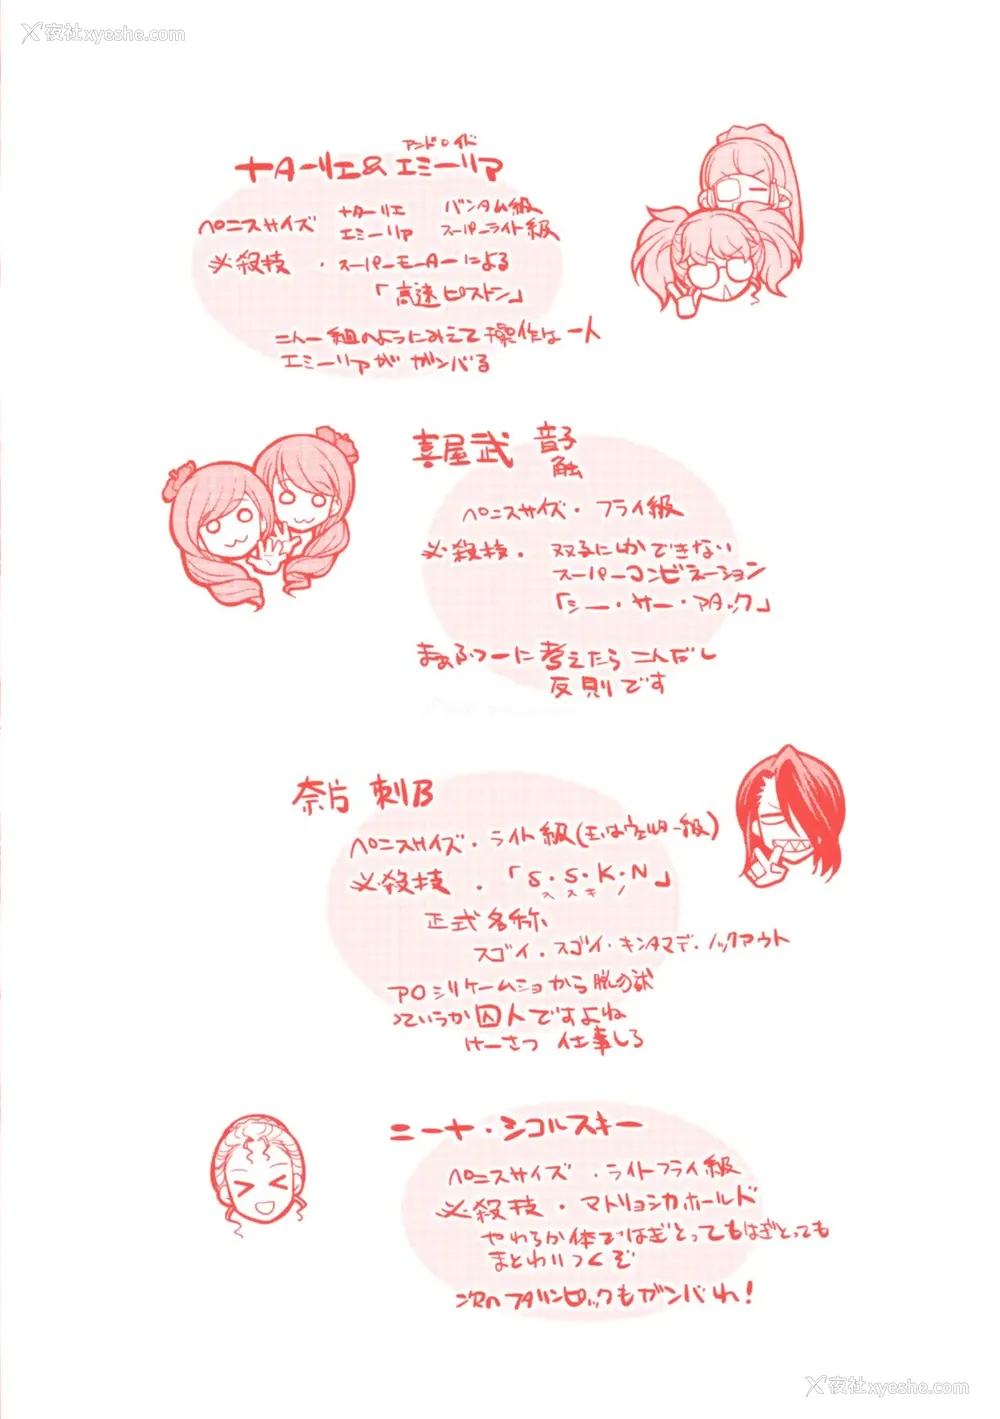 夜社xyeshe.com
アンドロイド
ナターリエ&エミーリア
ペニスサイズ ナターリエ バンタム級
エミーリア スーパーライト級
必殺技・スーパーモーターによる
「高速ピストン」
二人一組のようにみえて操作は一人
エミーリアがガンバる
喜屋武 音子
触
ペニスサイズ・フライ級
必殺技・双子にしかできない
スーパーコンビネーション
「シー・サー・アタック」
まぁふつーに考えたら二人だし
反則です
奈片 刺B
ペニスサイズ・ライト級(玉はウェルター級)
必殺技・「S・S・K・N」
ススキノ
正式名称
スゴイ・スゴイ・キンタマデ・ノックアウト
アO シリケームショから脱の獄
っていうか囚人ですよね
けーさつ 仕事しろ
ニーナ・シコルスキー
ペニスサイズ・ライトフライ級
必殺技・マトリョシカホールド
やわらか体ではぎとってもはぎとっても
まとわりつくぞ
次のフタリンピックもガンバれ!
夜社xyeshe.com